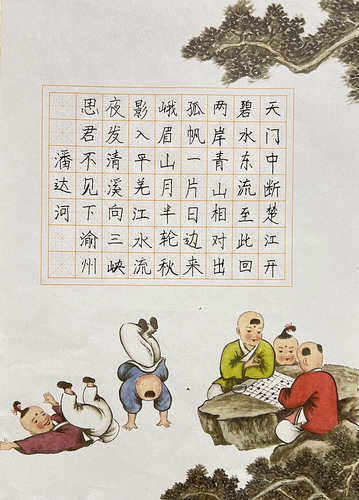 天门中断楚江开
碧水东流至此回
两岸青山相对出
孤帆一片日边来
峨眉山月半轮秋
影入平羌江水流
夜发清溪向三峡
思君不见下渝州
潘达河